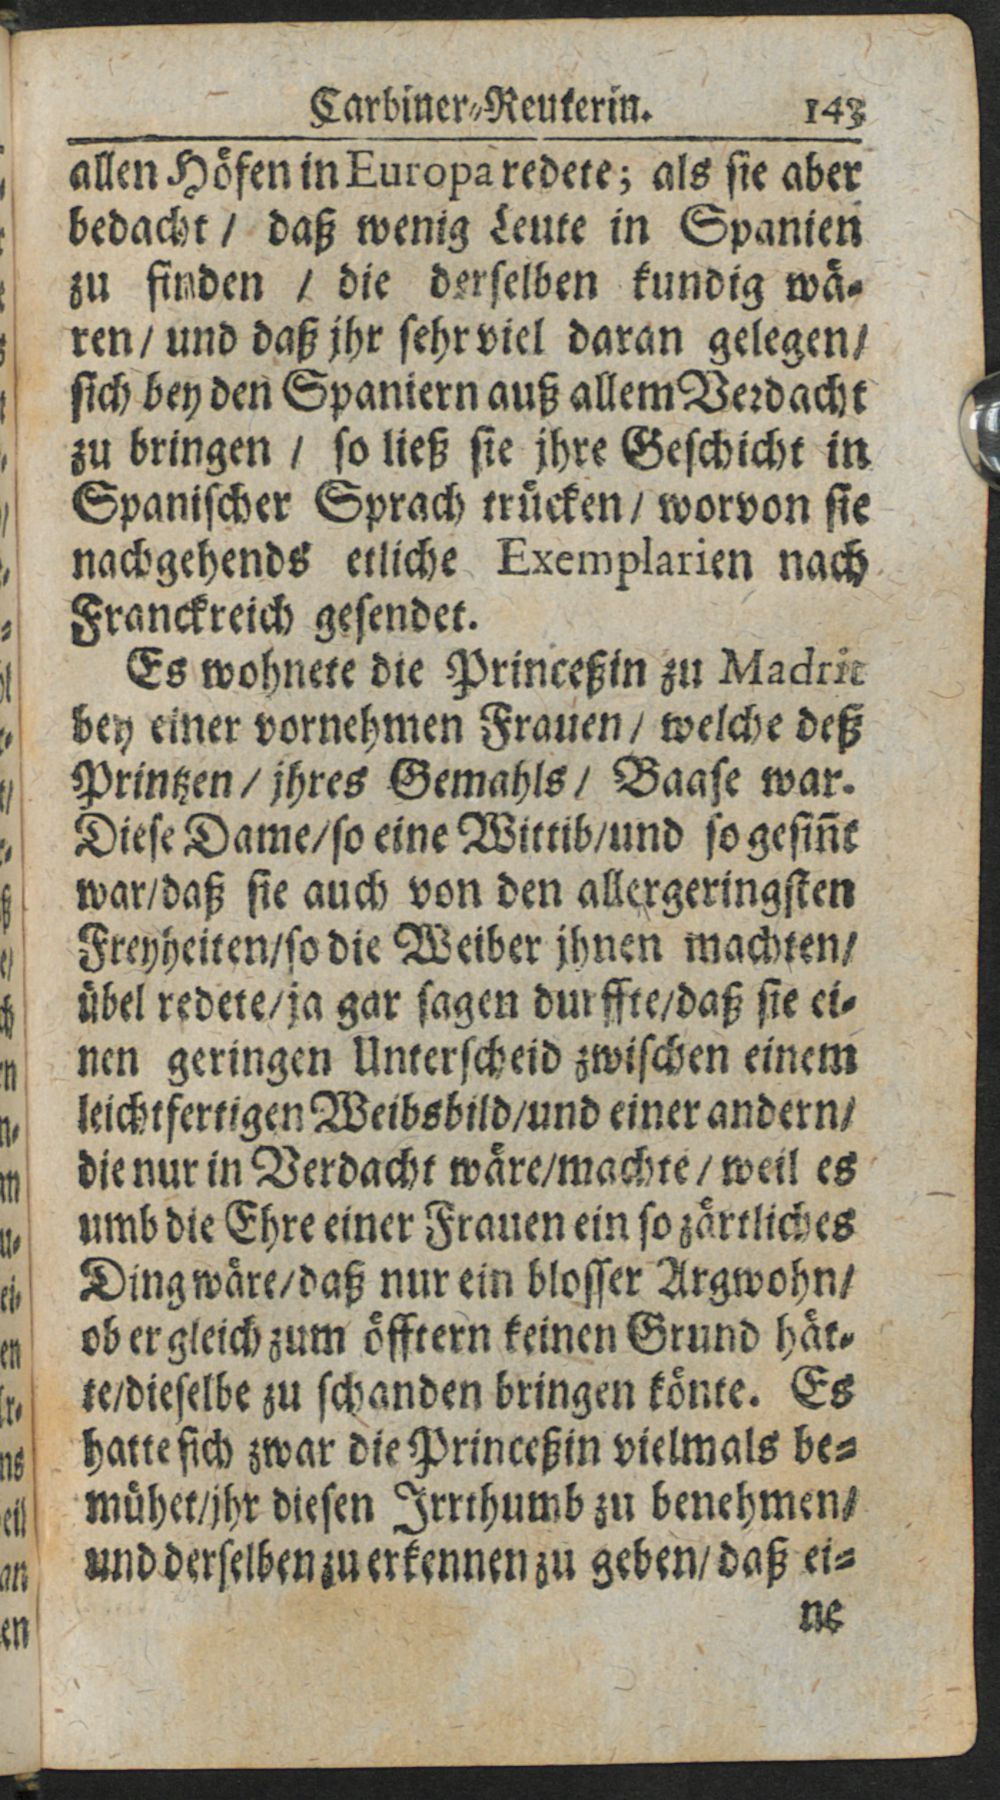 Carbiner-Reuterin. 143
allen Höfen in Europa redete; als sie aber
bedacht / daß wenig Leute in Spanien
zu finden / die derselben kundig wä-
ren / und daß jhr sehr viel daran gelegen /
sich bey den Spaniern auß allem Verdacht
zu bringen / so ließ sie jhre Geschicht in
Spanischer Sprach trücken / worvon sie
nachgehends etliche Exemplarien nach
Franckreich gesendet.
Es wohnete die Princeßin zu Madrit
bey einer vornehmen Frauen / welche deß
Printzen / jhres Gemahls / Baase war.
Diese Dame / so eine Wittib / und so gesiñt
war / daß sie auch von den allergeringsten
Freyheiten / so die Weiber jhnen machten /
übel redete / ja gar sagen durffte / daß sie ei-
nen geringen Unterscheid zwischen einem
leichtfertigen Weibsbild / und einer andern /
die nur in Verdacht wäre / machte / weil es
umb die Ehre einer Frauen ein so zärtliches
Ding wäre / daß nur ein blosser Argwohn /
ob er gleich zum öfftern keinen Grund hät-
te / dieselbe zu schanden bringen könte. Es
hatte sich zwar die Princeßin vielmals be-
mühet / jhr diesen Irrthumb zu benehmen /
und derselben zu erkennen zu geben / daß ei-
ne